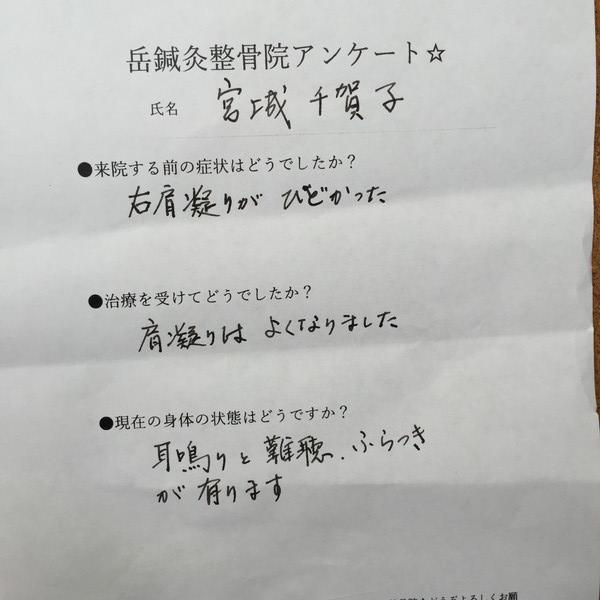 岳鍼灸整骨院アンケート☆
氏名 宮城 千賀子
●来院する前の症状はどうでしたか?
右肩凝りが ひどかった
●治療を受けてどうでしたか?
肩凝りは よくなりました
●現在の身体の状態はどうですか?
耳鳴りと難聴、ふらつき
が有ります
どうぞよろしくお願